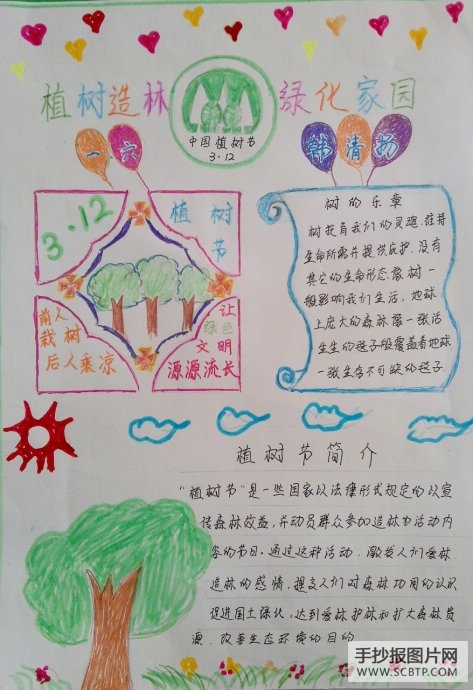 植树造林 绿化家园
中国植树节
3·12
一六
韩清扬
3·12
植树节
前人
栽树
后人乘凉
让
绿色
文明
源源流长
树的乐章
树抚育我们的灵魂,维持
生命所需并提供庇护,没有
其它的生命形态像树一
般影响我们生活,地球
上庞大的森林像一张活
生生的毯子般覆盖着地球
一张生活不可缺的毯子.
植树节简介
“植树节”是一些国家以法律形式规定的以宣
传森林效益,并动员群众参加造林为活动内
容的节日。通过这种活动,激发人们爱林
造林的感情,提高人们对森林功用的认识
促进国土绿化,达到爱林护林和扩大森林资
源、改善生态环境的目的
手抄报图片网
WWW.SCBTP.COM